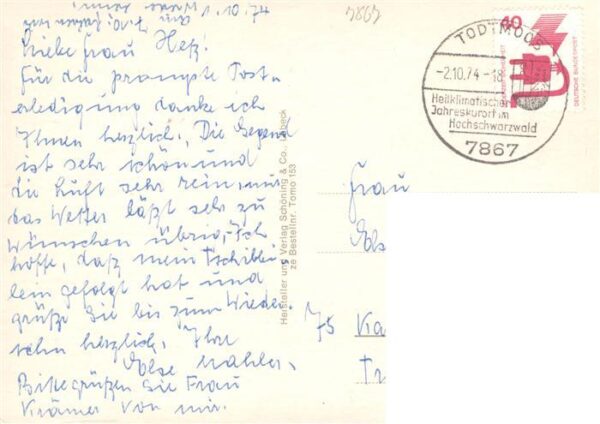 1.10.74
Liebe Frau Heß!
Für die prompte Post-
erledigung danke ich
Ihnen herzlich. Die Gegend
ist sehr schön und
die Luft sehr rein, nur
das Wetter läßt sehr zu
wünschen übrig. Ich
hoffe, daß mein
lein gefolgt hat und
grüße Sie bis zum Wieder-
sehn herzlich. Ihre
Else Mahler.
Bitte grüßen Sie Frau
Krämer von mir.
Hersteller und Verlag Schöning & Co., Lübeck
zu Bestellnr. Tomo 153
7867
40
DEUTSCHE BUNDESPOST
TODTMOOS
-2.10.74-18
Heilklimatischer
Jahreskurort im
Hochschwarzwald
7867
Frau
Else
75 Ka